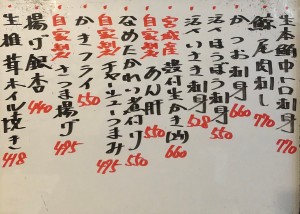 生本鮪中トロ刺身 770
鯨尾肉刺し 770
かつお刺身 660
活〆ほうぼう刺身 550
活〆いさき刺身 528
宮城産 殻付生かき(2ヶ) 660
自家製 あん肝 550
なめたかれい煮付け 550
自家製 チャーシューつまみ 495
かきフライ 550
自家製 さつま揚げ 495
揚げ銀杏 440
生椎茸ホイル焼き 418